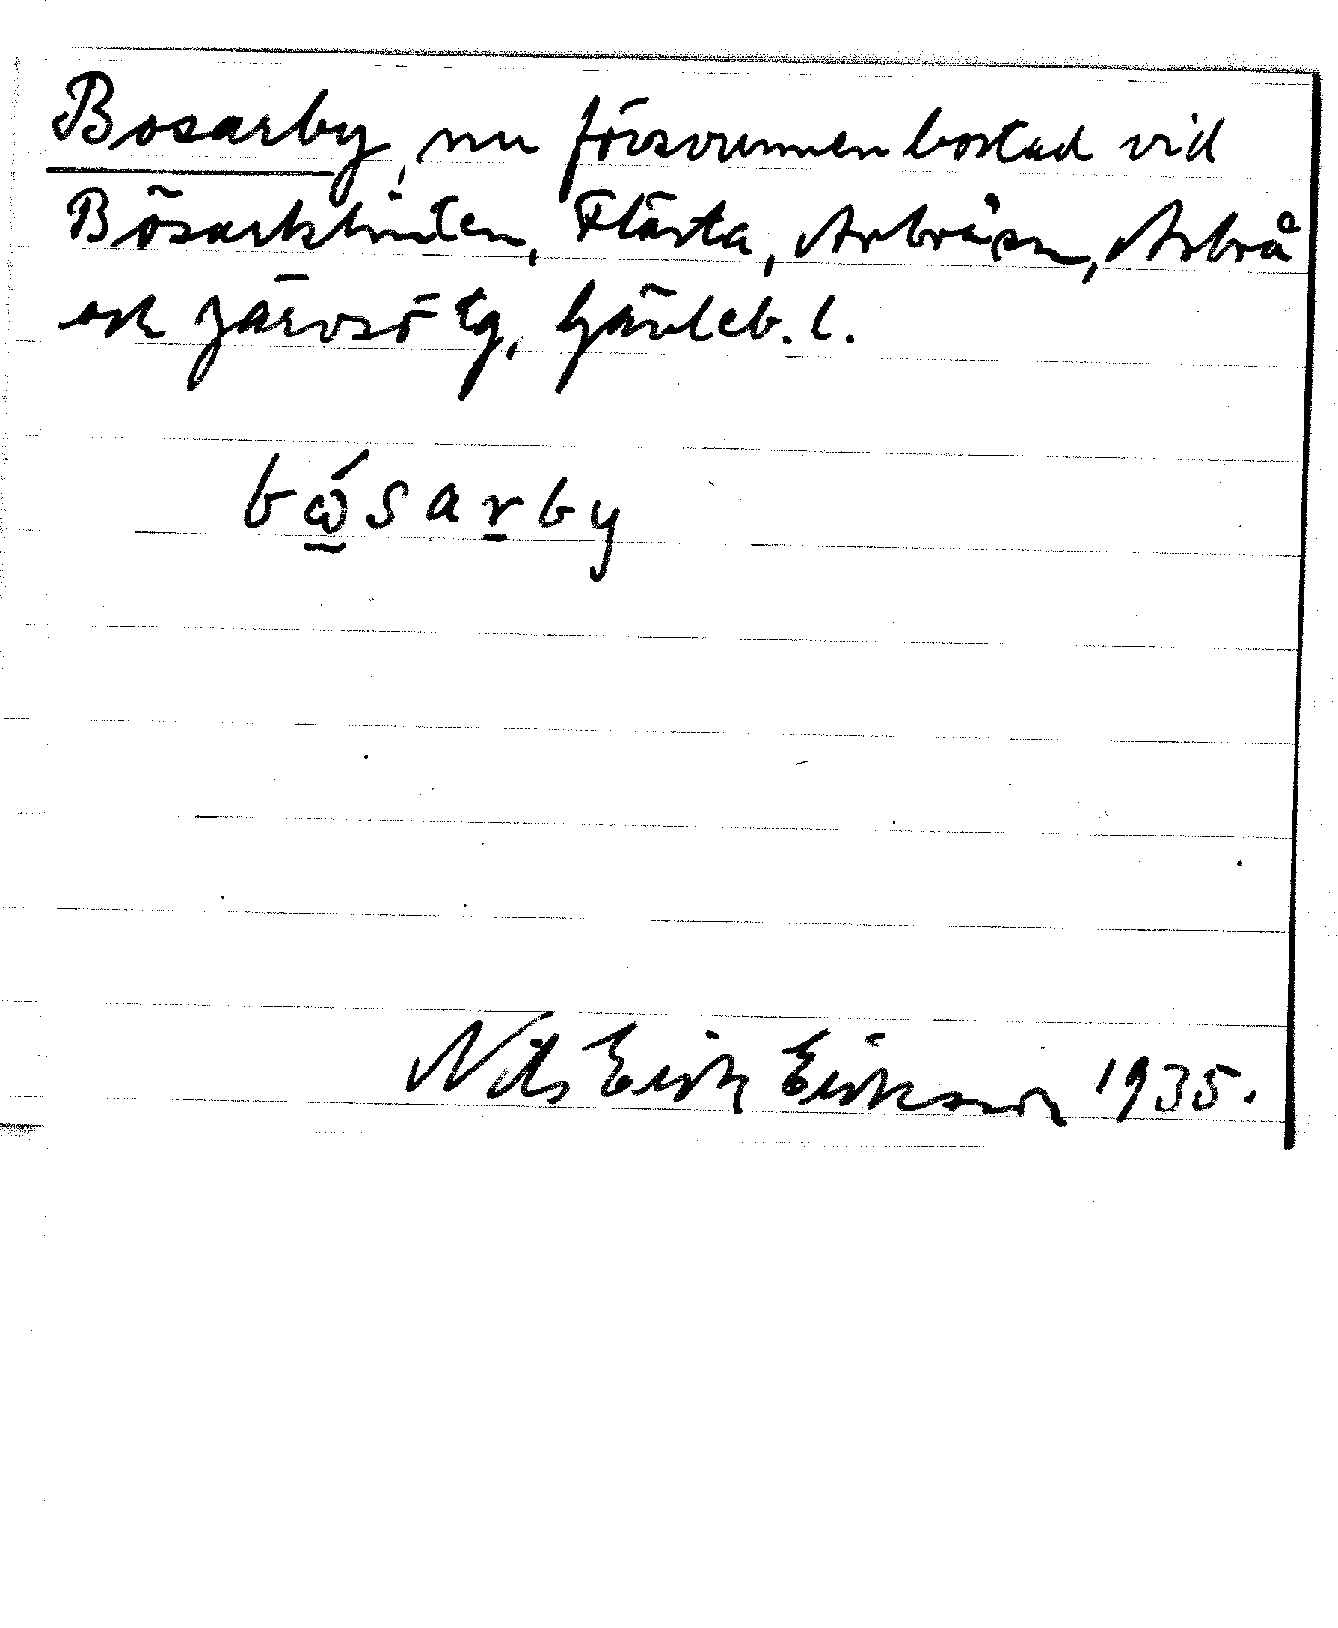 Bosarby, nu försvunnen bostad vid
Bösarklinten, Flästa, Arbrå sn, Arbrå
och Järvsö tg, Gävleb. l.
bώsarby
Nils Erik Eriksson 1935.